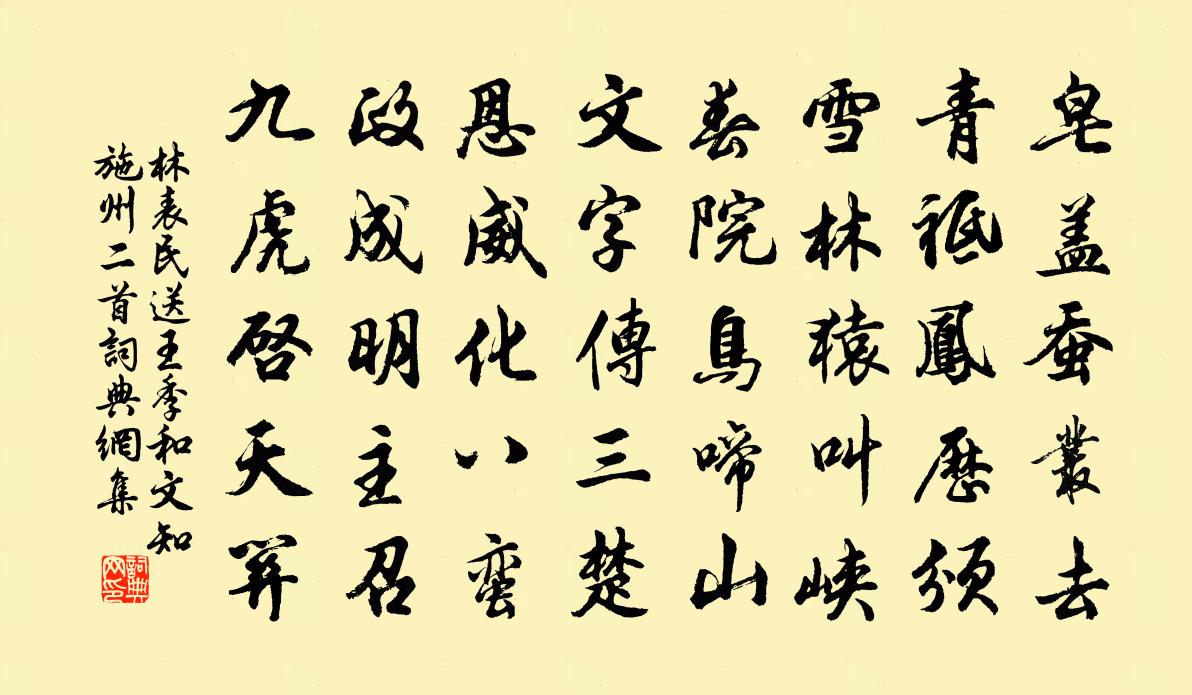 皂盖蚕叢去
青祗鳳歷頒
雪林猿叫峽
春院鳥啼山
文字傳三楚
恩威化八蠻
政成明主召
九虎啓天關
林表民送王季和文知
施州二首詞典網集
詞典網印